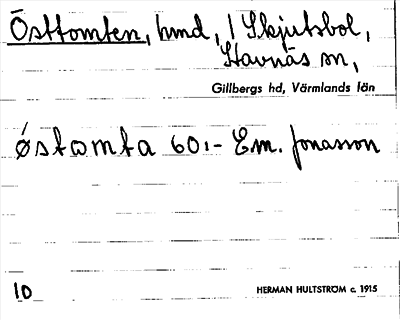 Östtomten, hmd, 1 Skjutsbol,
Stavnäs sn,
Gillbergs hd, Värmlands län
østomta 60:- Em. Jonasson
10
HERMAN HULTSTRÖM c. 1915